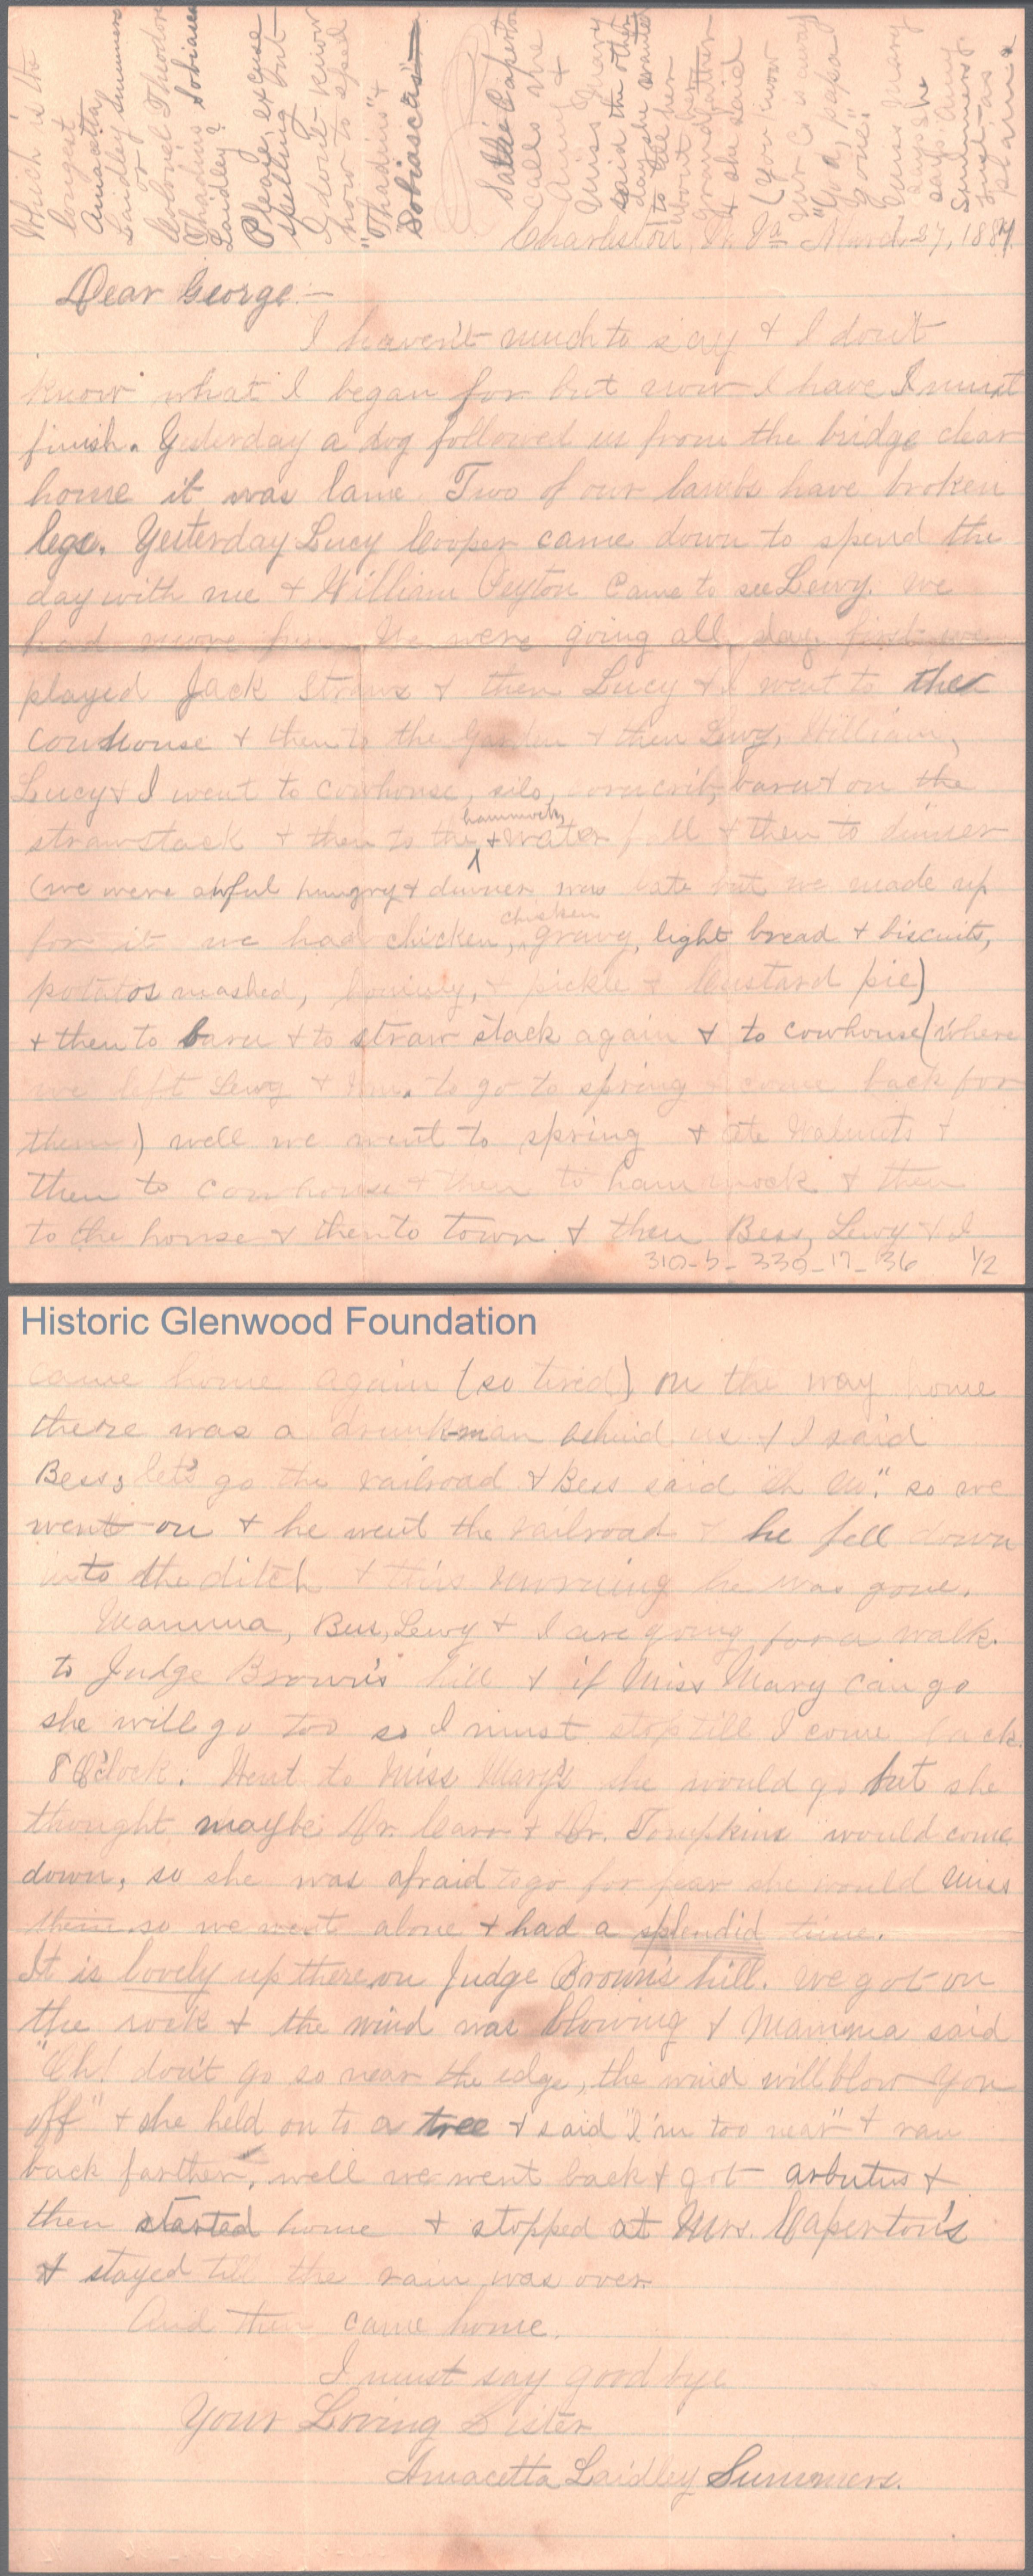 Which is the
longest
Amacetta
Laidley Summers
or
Colonel Theodore
Thadius Sobiasca
Laidley?
Please, excuse
spelling but
I don't know
how to spell
"Thadius" &
Sobiasca"
Sallie Caperton
calls me
Amy &
Miss Mary
said the other
day she wanted
to tell her
about her
Grandfather
& she said
(you know
Mr C is away
"God, papa
gone,"
Miss Mary
says she
says Amy
Summers
just as
plain
Charleston, W. Va March 27, 1887.
Dear George:—
I haven't much to say & I don't
know what I began for but now I have I must
finish. Yesterday a dog followed us from the bridge clear
home it was lame. Two of our lambs have broken
legs. Yesterday Lucy Cooper came down to spend the
day with me & William Peyton came to see Lewy. We
had more fun. We were going all day first we
played Jack Straws & then Lucy & I went to the
cowhouse & then to the Garden & then Lewy, William,
Lucy & I went to cowhouse, silo, corncrib, barn & on the
strawstack & then to the hammock, & water fall & then to dinner
(we were awful hungry & dinner was late but we made up
for it we had chicken, chicken gravy, light bread & biscuits,
potatos mashed, hominy, & pickle & Custard pie)
& then to barn & to straw stack again & to cowhouse (where
we left Lewy & Wm. to go to spring & come back for
them) well we went to spring & ate Walnuts &
then to cowhouse & then to hammock & then
to the house & then to town & then Bess, Lewy & I
310-5-339-17-36 1/2
Historic Glenwood Foundation
came home again (so tired) on the way home
there was a drunk man behind us & I said
Bess, let's go the railroad & Bess said "Oh No." so we
went on & he went the railroad & he fell down
into the ditch & this morning he was gone.
Mamma, Bess, Lewy & I are going for a walk
to Judge Brown's hill & if Miss Mary can go
she will go too so I must stop till I come back.
8 O'clock. Went to Miss Mary's she would go but she
thought maybe Dr. Carr & Dr. Tompkins would come
down, so she was afraid to go for fear she would miss
them so we went alone & had a splendid time.
It is lovely up there on Judge Brown's hill. We got on
the rock & the wind was blowing & Mamma said
"Oh! don't go so near the edge, the wind will blow you
off" & she held on to a tree & said "I'm too near" & ran
back farther, well we went back & got arbutus &
then started home & stopped at Mrs. Caperton's
& stayed till the rain was over
And then came home.
I must say good bye
Your Loving Sister
Amacetta Laidley Summers.